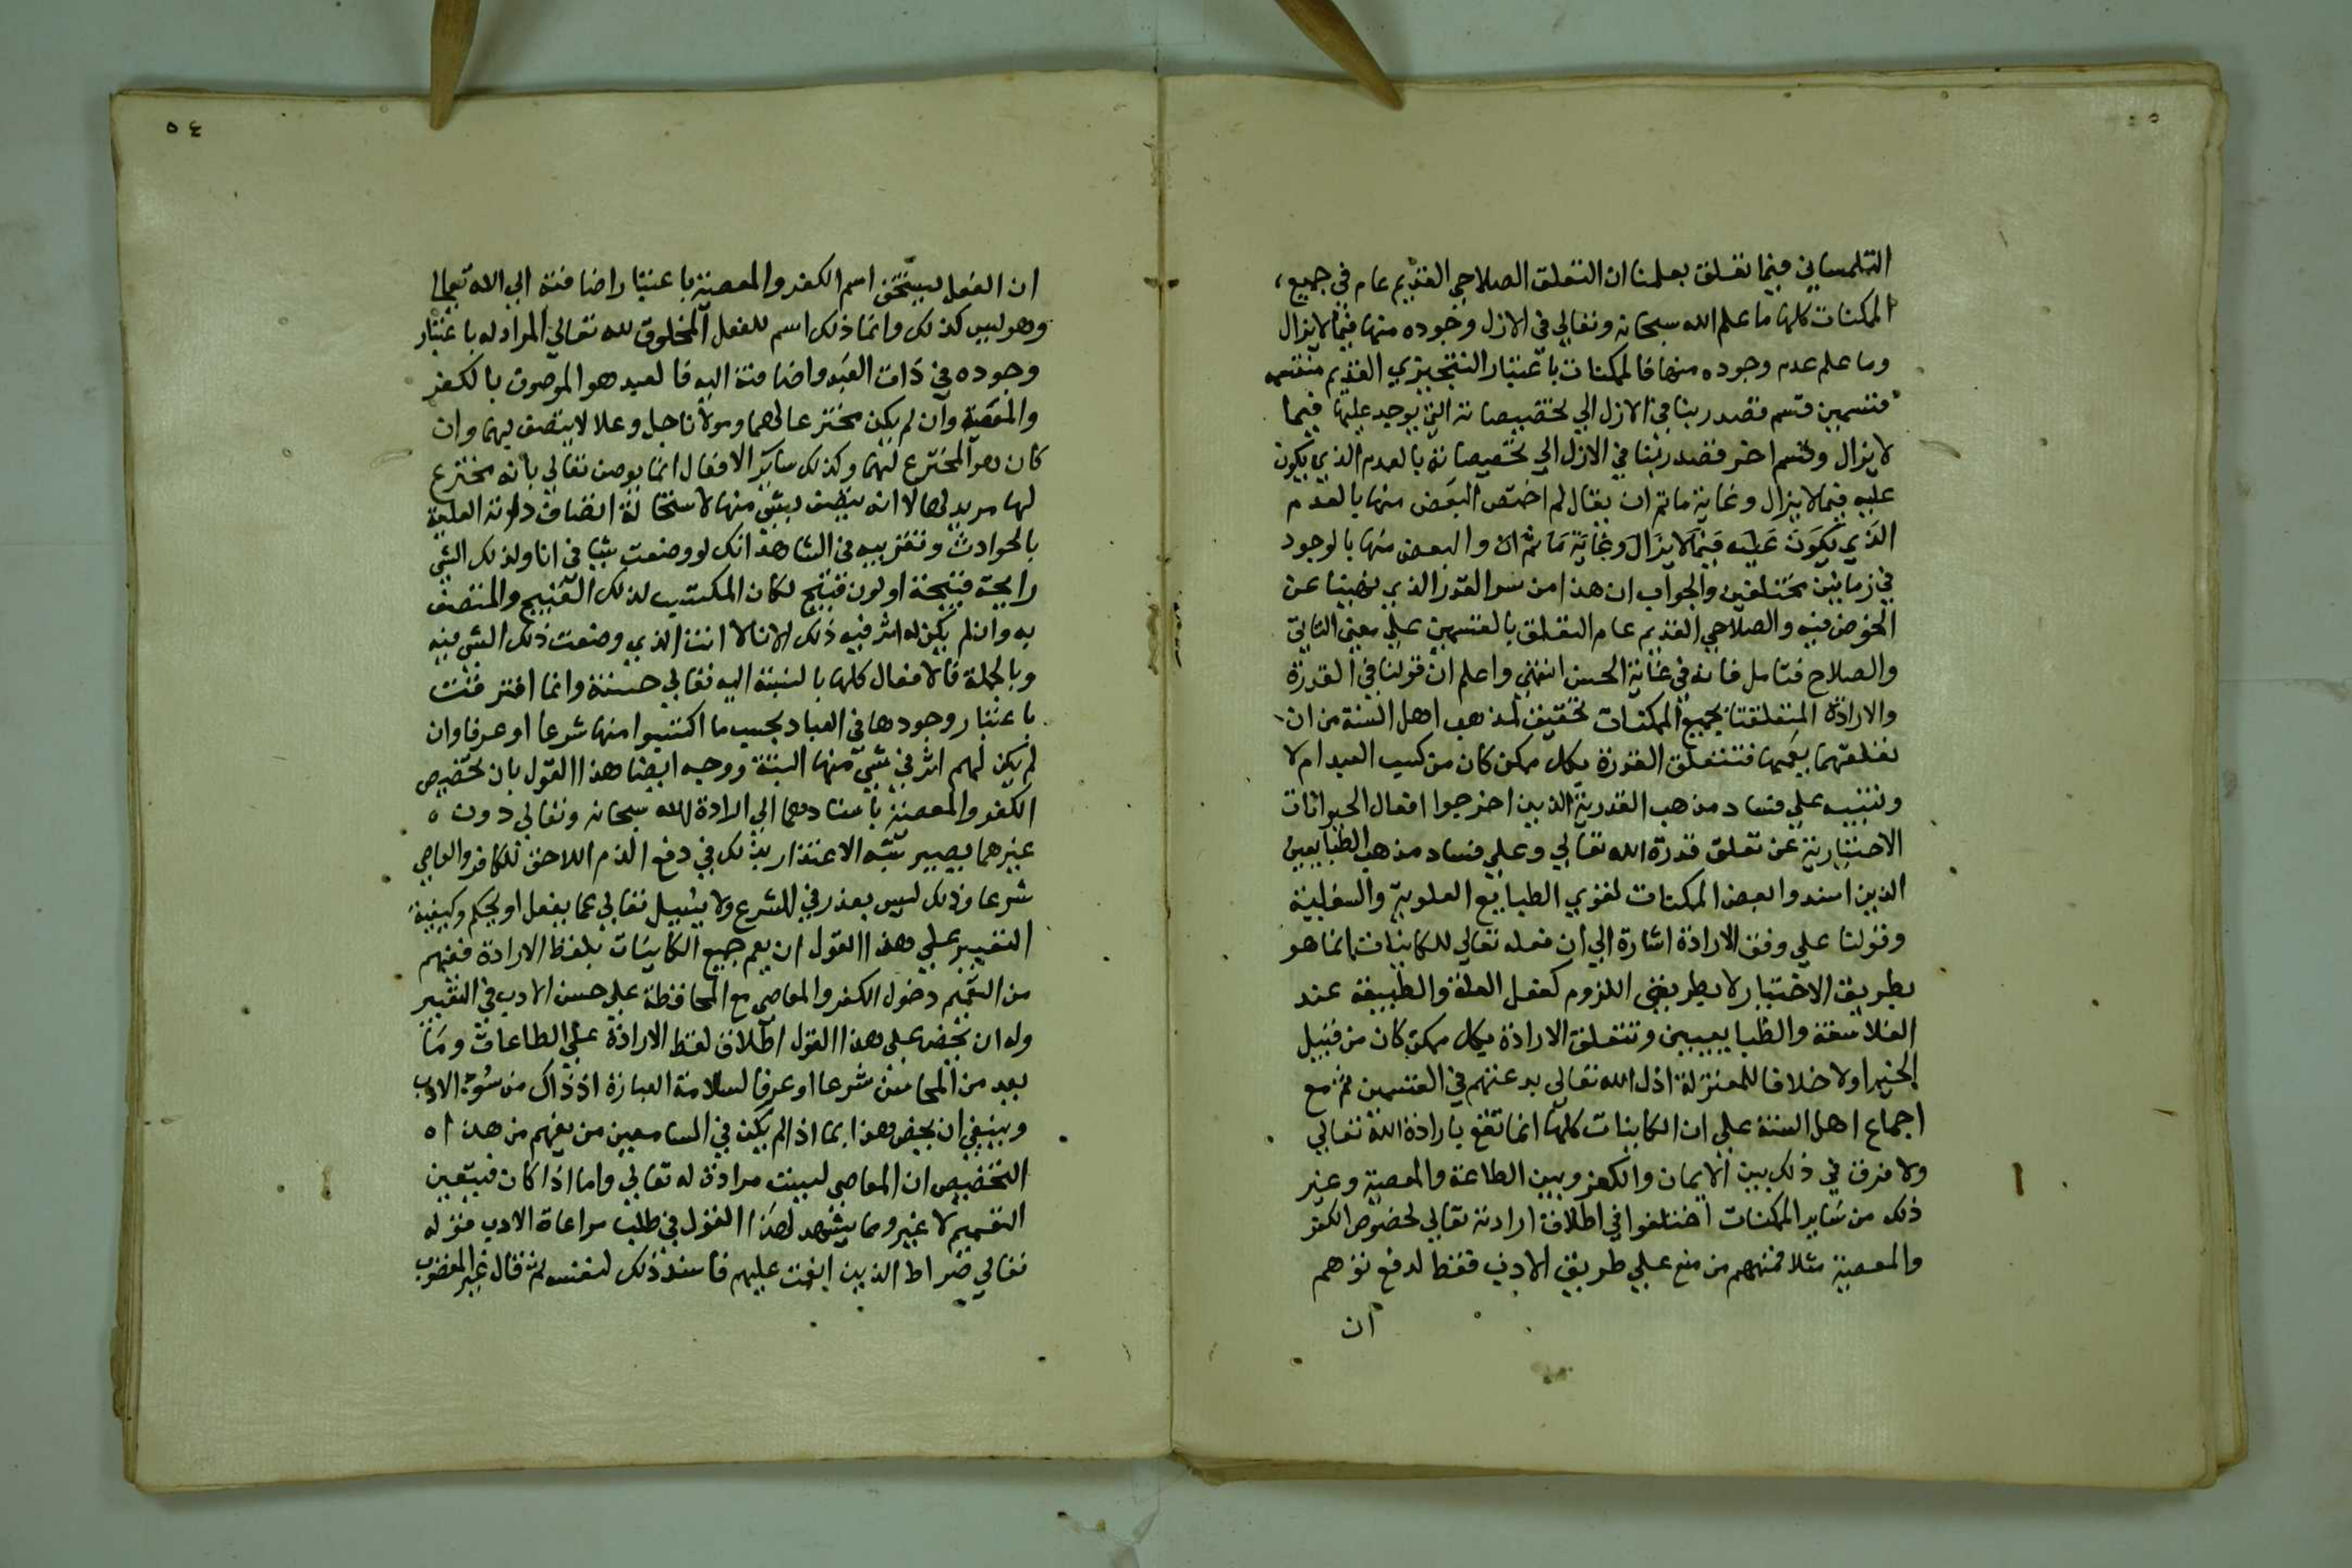 التلمساني فيما تعلق بعلمنا ان التعلق الصلاحي القديم عام في جميع
الممكنات كلها ما علم الله سبحانه وتعالي في الازل وجوده منها فيما لا يزال
وما علم عدم وجوده منها فالممكنات باعتبار التنجيزي القديم منقسمه
قسمين قسم قصد ربنا في الازل الي تخصيصاته التي يوجد عليها فيما
لا يزال وقسم اخر قصد ربنا في الازل الي تخصيصاته بالعدم الذي يكون
عليه فيما لا يزال وغاية ما تم ان يقال لم اختص البعض منها بالعدم
الذي يكون عليه فيما لا يزال وغاية ما تم ان والبعض منها بالوجود
في زمانين مختلفين والجواب ان هذا من سر القدر الذي نهينا عن
الخوض فيه والصلاحي القديم عام التعلق بالقسمين علي معني التاتي
والصلاح فتامل فانه في غاية الحسن انتهي واعلم ان قولنا في القدرة
والارادة المتعلقتا بجميع الممكنات تحقيق لمذهب اهل السنة من ان
تعلقهما يعمها فتتعلق القدرة بكل ممكن كان من كسب العبد ام لا
وتنبيه علي فساد مذهب القدرية الذين اخرجوا افعال الحيوانات
الاختيارية عن تعلق قدرة الله تعالي وعلي فساد مذهب الطبايعين
الذين اسندوا بعض الممكنات لقوي الطبايع العلوية والسفلية
وقولنا علي وفق الارادة اشارة الي ان فعله تعالي للكاينات انما هو
بطريق الاختيار لا بطريق اللزوم كفعل العلة والطبيعة عند
الفلاسفة والطبايعيين وتتعلق الارادة بكل ممكن كان من قبيل
الخير اولا خلافا للمعتزلة اذل الله تعالي بدعتهم في القسمين ثم مع
اجماع اهل السنة علي ان الكاينات كلها انما تقع بارادة الله تعالي
ولا فرق في ذلك بين الايمان والكفر وبين الطاعة والمعصية وغير
ذلك من ساير الممكنات اختلفوا في اطلاق ارادته تعالي لخصوص الكفر
والمعصية مثلا فمنهم من منع علي طريق الادب فقط لدفع توهم
ان
٥٤
ان الفعل ليستحق اسم الكفر والمعصية باعتبار اضافته الي الله تعالي
وهو ليس كذلك وانما ذلك اسم للفعل المخلوق لله تعالي المراد له باعتبار
وجوده في ذات العبد واضافته اليه فالعبد هو الموصوف بالكفر
والمعصية وان لم يكن مخترعا لهما ومولانا جل وعلا لا يتصف بهما وان
كان هو المخترع لهما وكذلك ساير الافعال انما يوصف تعالي بانه مخترع
لها مريد لها لا انه يتصف بشي منها لاستحالة اتصاف ذاته العلية
بالحوادث وتقريبه في الشاهد انك لو وضعت شيا في انا ولذلك الشي
رايحة قبيحة او لون قبيح لكان المكتسب لذلك القبيح والمتصف
به وان لم يكن له اثر فيه ذلك الانا لا انت الذي وضعت ذلك الشي فيه
وبالجملة فالافعال كلها بالنسبة اليه تعالي حسنة وانما افترقت
باعتبار وجودها في العباد بحسب ما اكتسبوا منها شرعا او عرفا وان
لم يكن لهم اثر في شي منها البتة ووجه ايضا هذا القول بان تخصيص
الكفر والمعصية باسنادهما الي ارادة الله سبحانه وتعالي دون ه
غيرهما يصير شبه الاعتذار بذلك في دفع الذم اللاحق للكافر والعاصي
شرعا وذلك ليس بعذر في الشرع ولا يسيل تعالي عما يفعل او يحكم وكيفية
التعبير علي هذا القول ان يعم جميع الكاينات بلفظ الارادة فيفهم
من التعميم دخول الكفر والمعاصي مع المحافظة علي حسن الادب في التعبير
وله ان يخص علي هذا القول اطلاق لفظ الارادة علي الطاعات وما
يعد من المحاسن شرعا او عرفا لسلامة العبارة اذ ذاك من سوء الادب
وينبغي ان يخص هذا بما اذا لم يكن في السامعين من يفهم من هذا ه
التخصيص ان المعاصي ليست مرادة له تعالي واما اذا كان فيتعين
التعميم لا غير ومما يشهد لهذا القول في طلب مراعاة الادب قوله
تعالي صراط الذين انعمت عليهم فاسند ذلك لنفسه ثم قال غير المغضوب